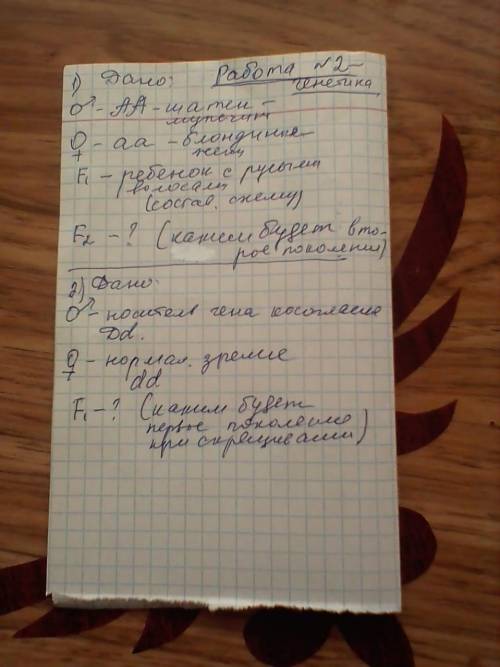 Работа №2-
1) Дано: генетика
♂ - АА - шатен -
мужчина
♀ - аа - блондинка
жен
F₁ - ребенок с русыми
волосами
(состав. схему)
F₂ - ? (каким будет вто-
рое поколение)
2) Дано:
♂ - носитель гена косоглазия
Dd.
♀ - нормал. зрение
dd
F₁ - ? (каким будет
первое поколение
при скрещивании)